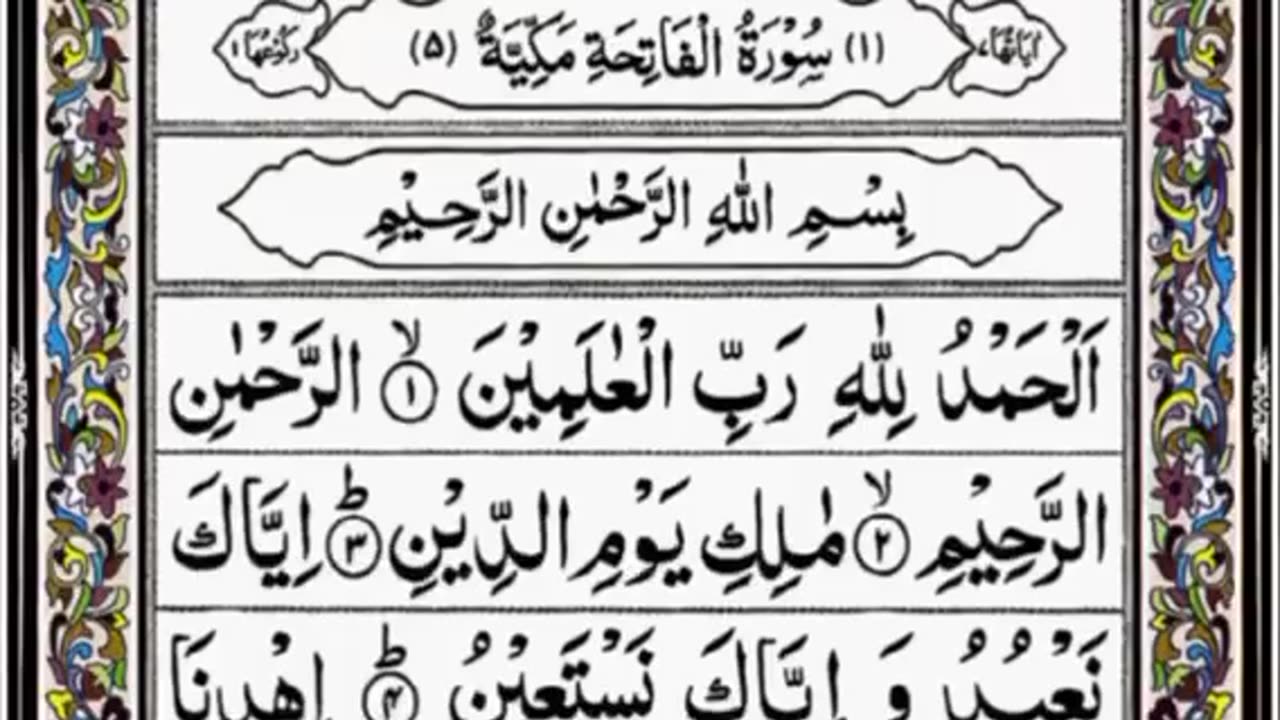 اٰيَاتُهَا ٧ (١) سُوْرَةُ الْفَاتِحَةِ مَكِّيَّةٌ (٥) رَكُوْعُهَا ١
بِسْمِ اللّٰهِ الرَّحْمٰنِ الرَّحِيْمِ
اَلْحَمْدُ لِلّٰهِ رَبِّ الْعٰلَمِيْنَ ۙ ١ الرَّحْمٰنِ
الرَّحِيْمِ ۙ ٢ مٰلِكِ يَوْمِ الدِّيْنِ ؕ ٣ اِيَّاكَ
نَعْبُدُ وَ اِيَّاكَ نَسْتَعِيْنُ ؕ ۴ اِهْدِنَا